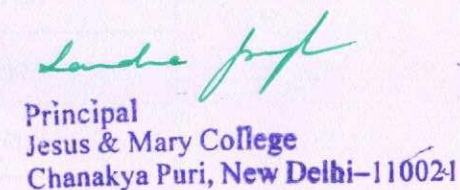 Principal
Jesus & Mary College
Chanakya Puri, New Delhi–110021